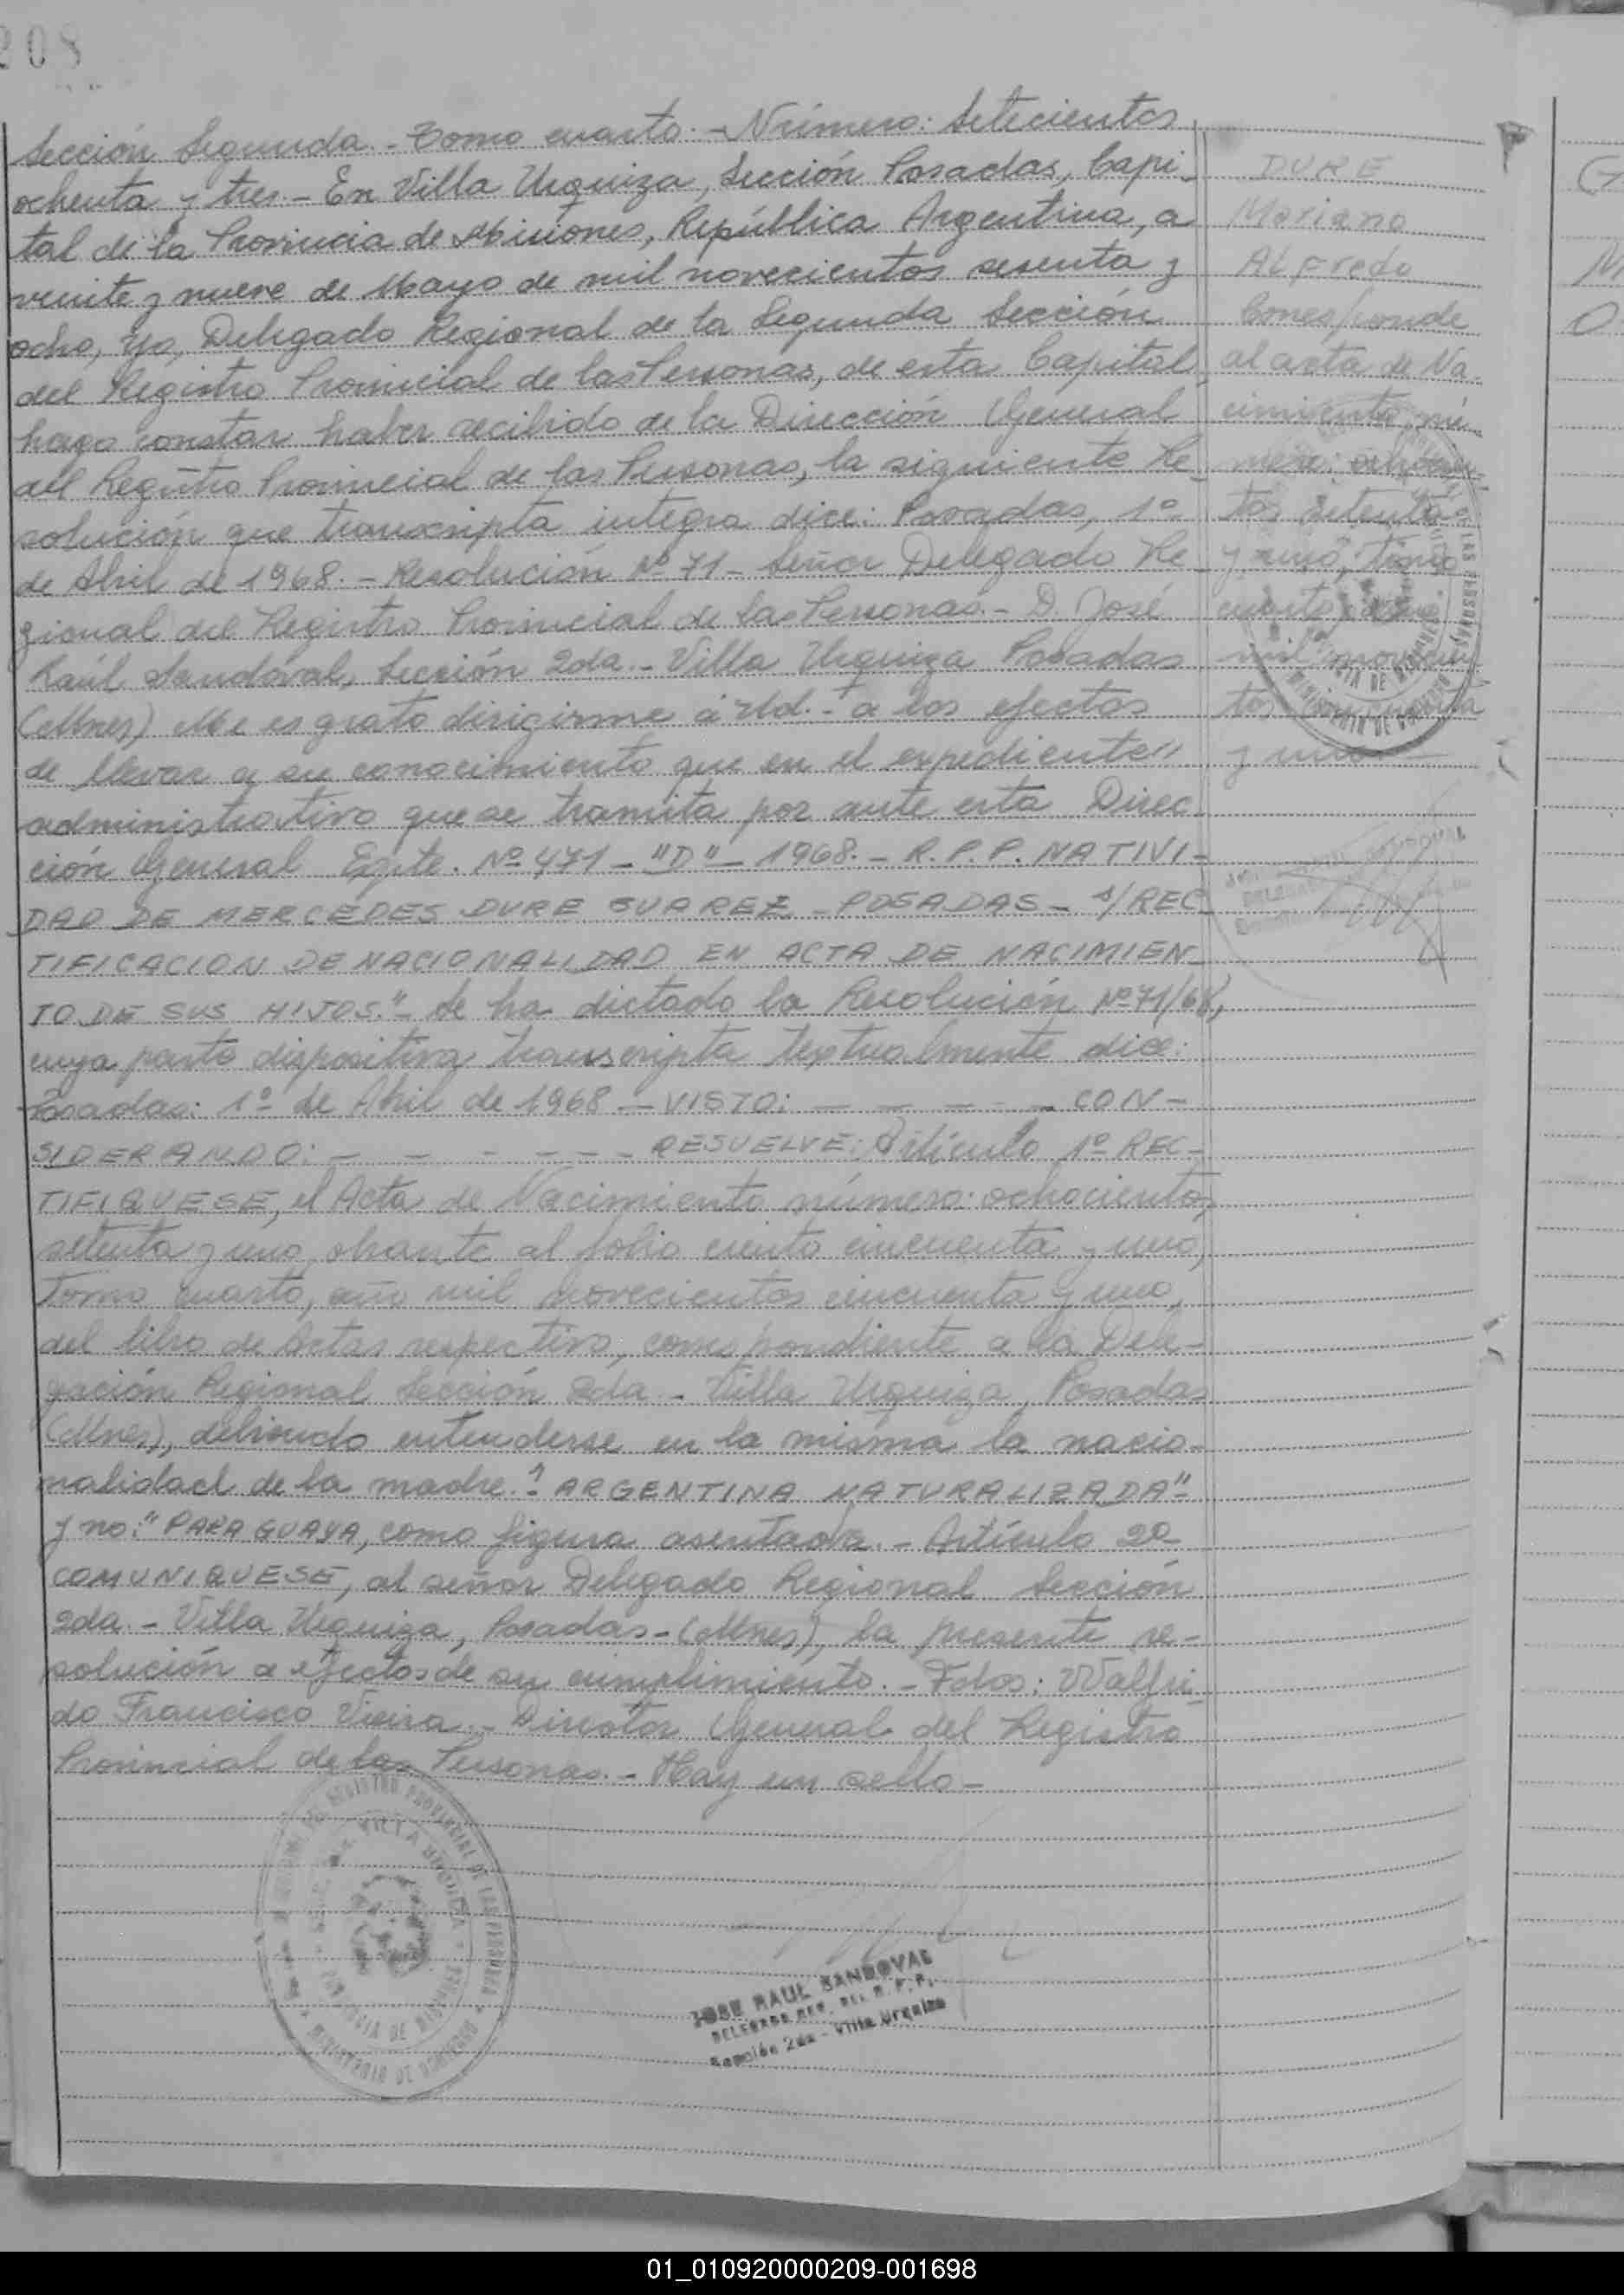 208
Sección Segunda.- Tomo cuarto.- Número: Setecientos
ochenta y tres.- En Villa Urquiza, Sección Posadas, Capi-
tal de la Provincia de Misiones, República Argentina, a
veinte y nueve de Mayo de mil novecientos sesenta y
ocho, yo, Delegado Regional de la Segunda Sección
del Registro Provincial de las Personas, de esta Capital,
hago constar haber recibido de la Dirección General
del Registro Provincial de las Personas, la siguiente Re-
solución que transcripta integra dice: Posadas, 1º
de Abril de 1968.- Resolución Nº 71- Señor Delegado Re-
gional del Registro Provincial de las Personas.- D. José
Raúl Sandoval, Sección 2da.- Villa Urquiza Posadas
(Mnes) Me es grato dirigirme a Ud.- a los efectos
de llevar a su conocimiento que en el expediente"
administrativo que se tramita por ante esta Direc-
ción General Expte. Nº 471-"D"-1968.- R.P.P. NATIVI-
DAD DE MERCEDES DURE SUAREZ -POSADAS- s/REC-
TIFICACION DE NACIONALIDAD EN ACTA DE NACIMIEN-
TO DE SUS HIJOS."- Se ha dictado la Resolución Nº 71/68,
cuya parte dispositiva transcripta textualmente dice:
Posadas: 1º de Abril de 1968 - VISTO: - - - - - CON-
SIDERANDO: - - - - - - RESUELVE: Artículo 1º REC-
TIFIQUESE, el Acta de Nacimiento número: ochocientos
setenta y uno, obrante al folio ciento cincuenta y uno,
Tomo cuarto, año mil novecientos cincuenta y uno,
del libro de Actas respectivo, correspondiente a la Dele-
gación Regional Sección 2da.- Villa Urquiza, Posadas
(Mnes), debiendo entenderse en la misma la nacio-
nalidad de la madre: "ARGENTINA NATURALIZADA"
y no: "PARAGUAYA, como figura asentada.- Artículo 2º
COMUNIQUESE, al señor Delegado Regional Sección
2da.- Villa Urquiza, Posadas-(Mnes), la presente re-
solución a efectos de su cumplimiento.- Fdos: Walfri-
do Francisco Vieira.- Director General del Registro
Provincial de las Personas.- Hay un sello-
DURE
Mariano
Alfredo
Corresponde
al acta de Na-
cimiento nú-
mero: ochocien-
tos setenta
y uno, Tomo
cuarto, año
mil novecien-
tos cincuenta
y uno
REGISTRO PROVINCIAL DE LAS PERSONAS
VILLA URQUIZA
PROVINCIA DE MISIONES
MINISTERIO DE GOBIERNO
JOSE RAUL SANDOVAL
DELEGADO REG. DEL R. P. P.
Sección 2da - Villa Urquiza
01_010920000209-001698